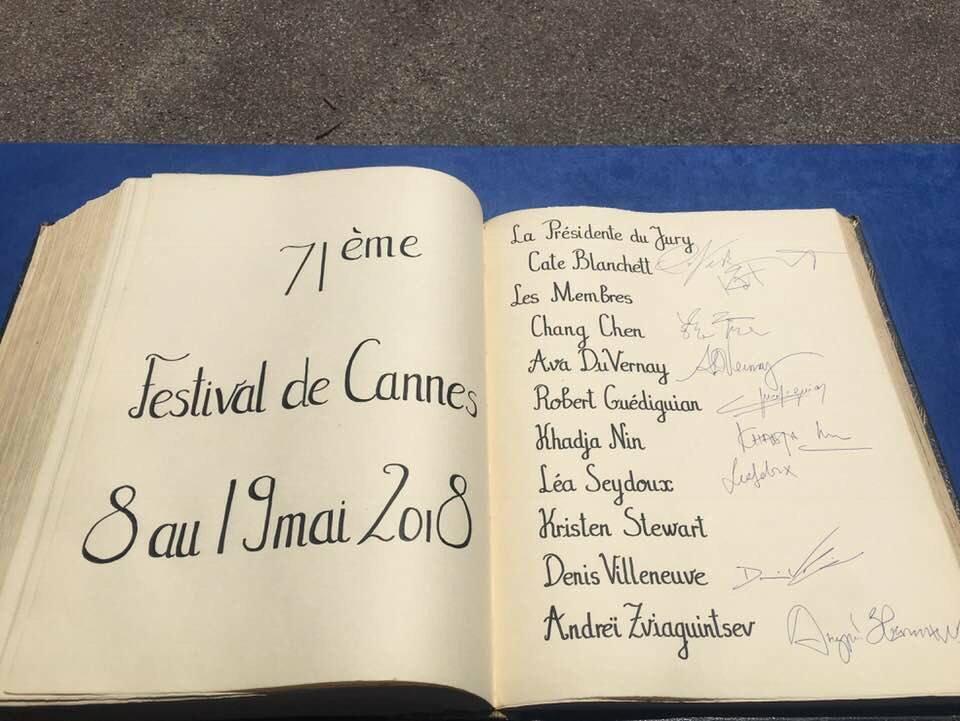 71ème
Festival de Cannes
8 au 19 mai 2018
La Présidente du Jury
Cate Blanchett
Les Membres
Chang Chen
Ava DuVernay
Robert Guédiguian
Khadja Nin
Léa Seydoux
Kristen Stewart
Denis Villeneuve
Andreï Zviaguintsev